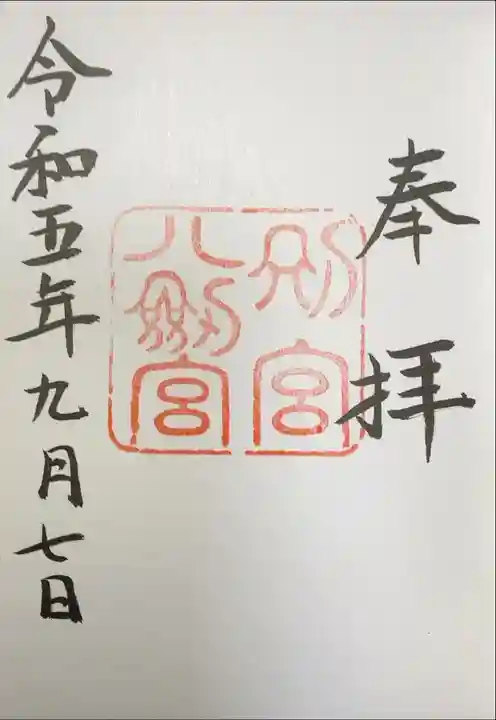 奉拝
別宮
八剣宮
令和五年九月七日